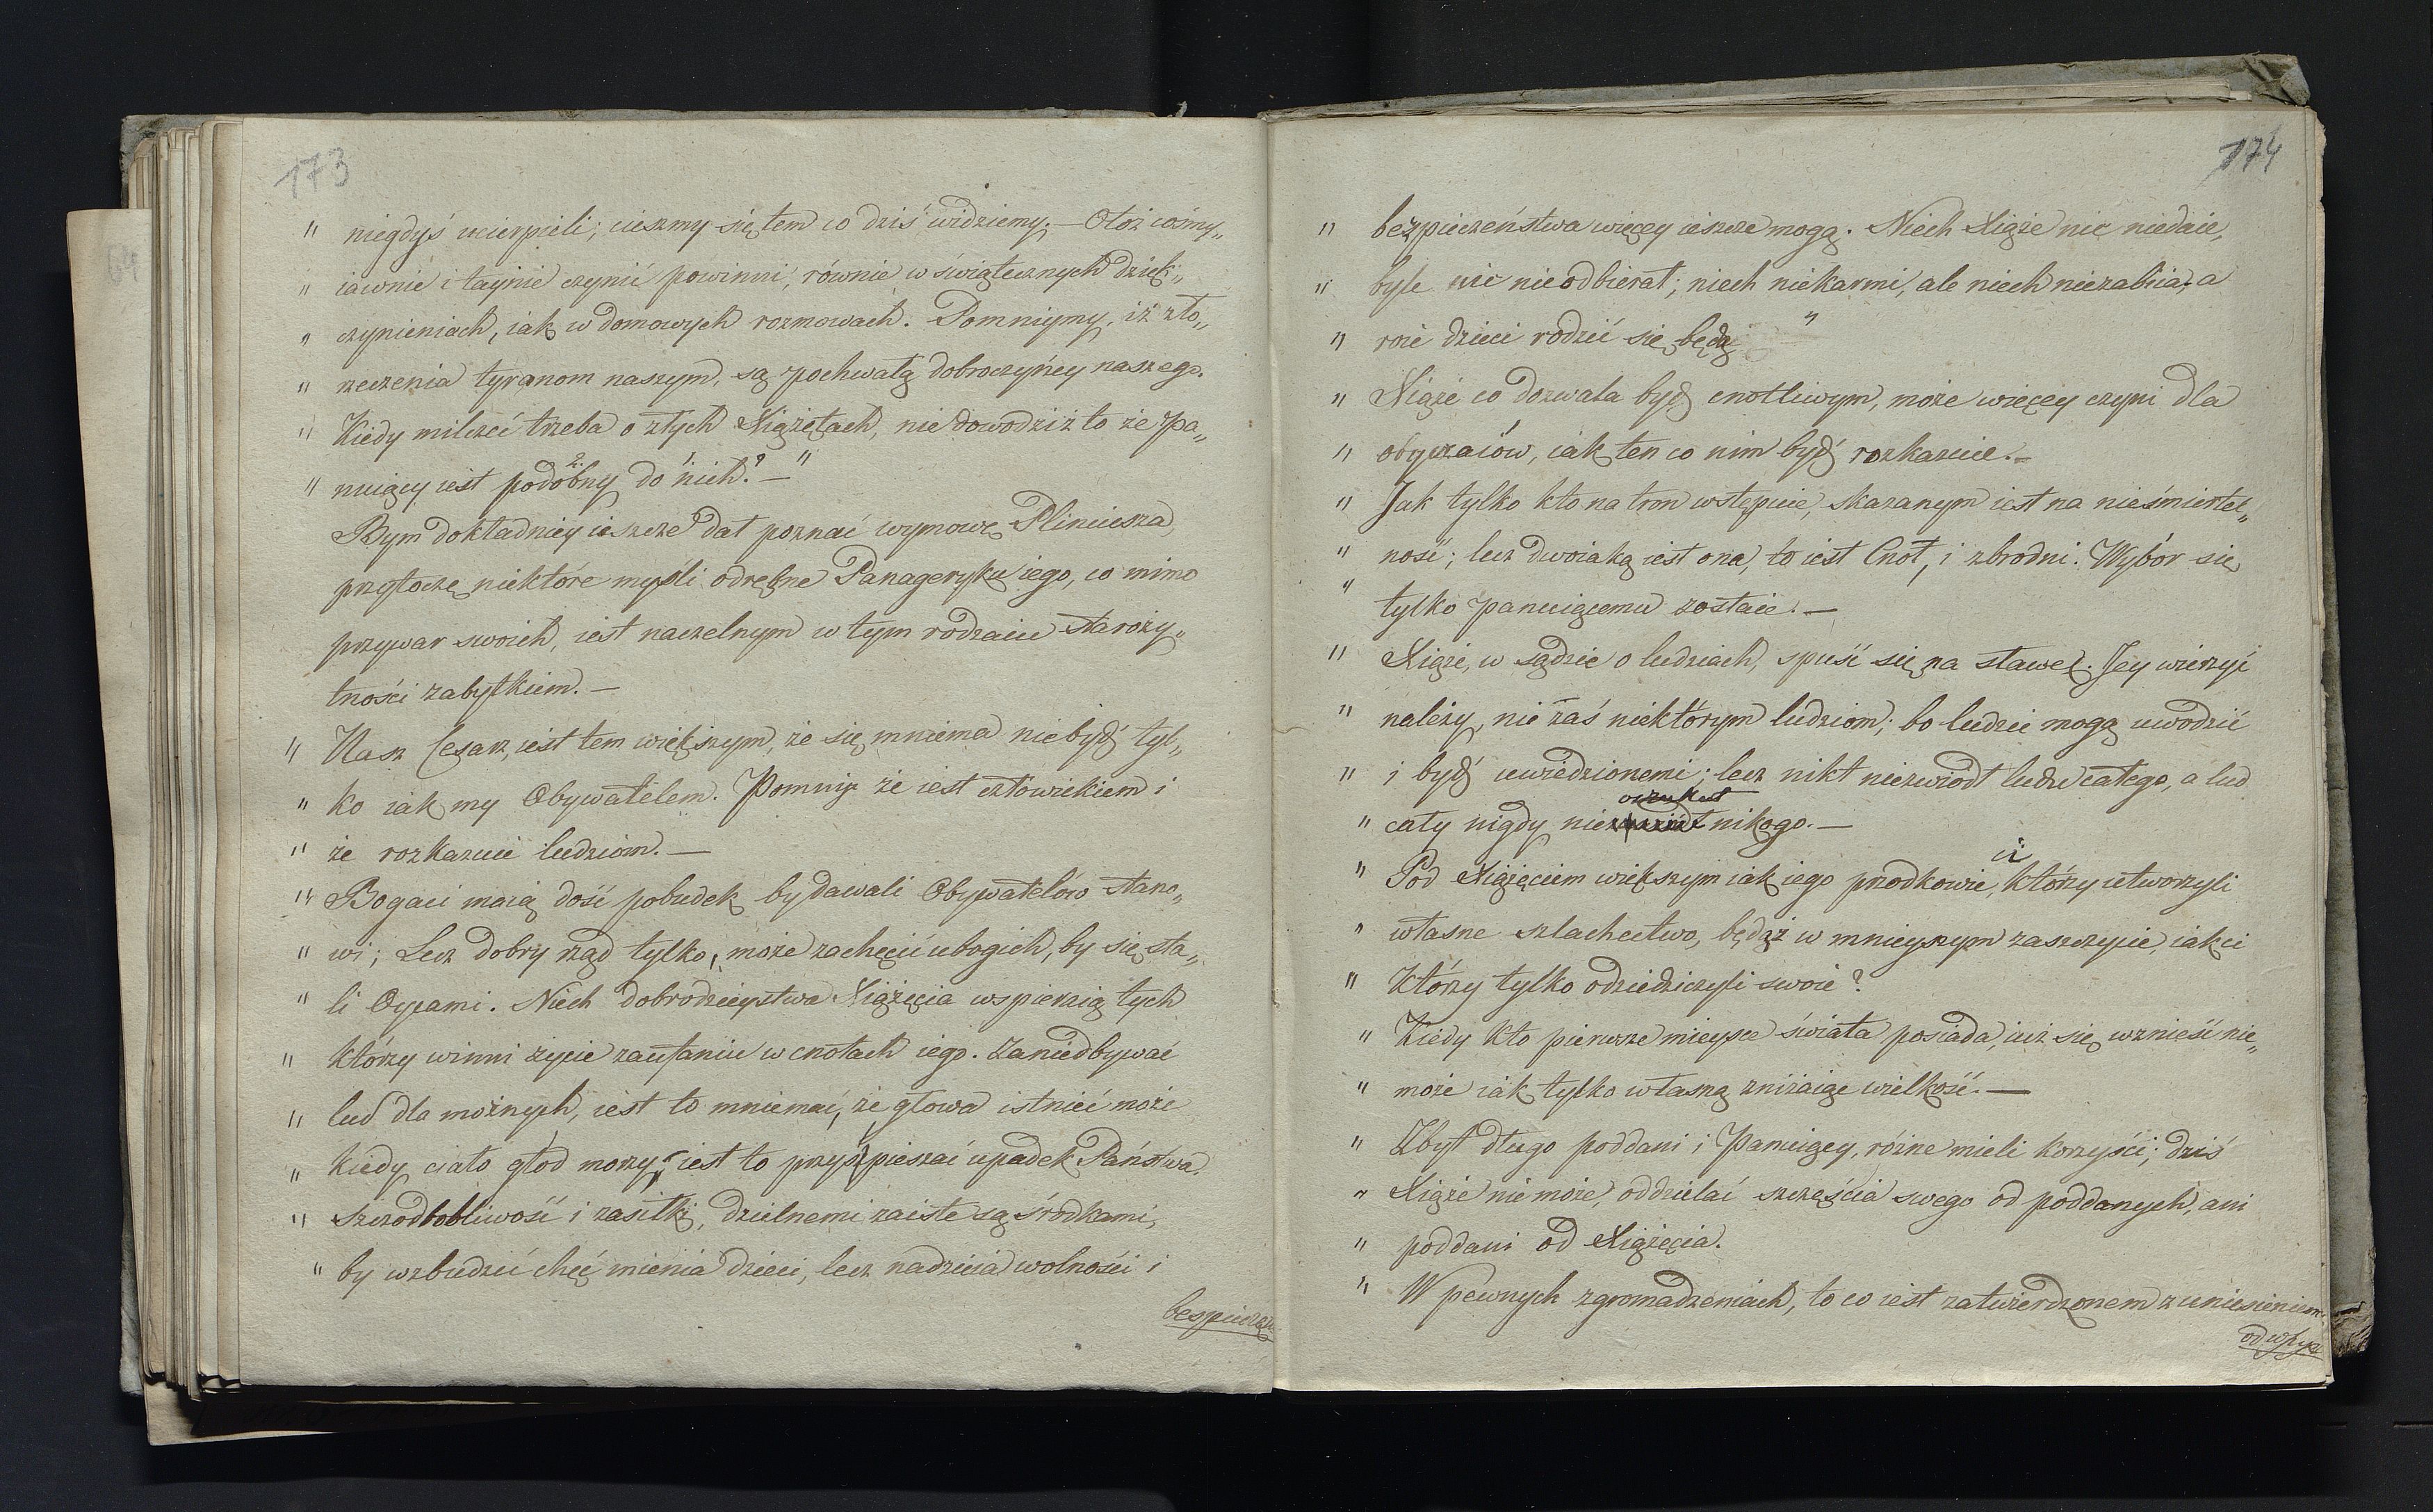 173
" niegdyś ucierpieli; cieszmy się tem co dziś widziemy. — Otóż cośmy„
" iawnie i taynie czynić powinni, równie w świątecznych dzięk„
" czynieniach, iak w domowych rozmowach. Pomniymy, iż zło„
" rzeczenia tyranom naszym, są pochwałą dobroczyńcy naszego.
" Kiedy milczeć trzeba o złych Xiążętach, nie dowodziż to że pa„
" nuiący iest podobny do nich? — "
Bym dokładniey ieszcze dał poznać wymowę Pliniusza,
przytoczę niektóre myśli odrębne Panageryku iego, co mimo
przywar swoich, iest naczelnym w tym rodzaiu staroży„
tności zabytkiem. —
" Nasz Cesarz, iest tem większym, że się mniema niebydź tyl„
" ko iak my Obywatelem. Pomny że iest człowiekiem i
" że rozkazuie ludziom. —
" Bogaci maią dość pobudek by dawali Obywatelów stano„
" wi; Lecz dobry rząd tylko, może zachęcić ubogich, by się sta„
" li Oycami. Niech dobrodzieystwa Xiążęcia wspieraią tych
" którzy winni życie zaufaniu w cnotach iego. Zaniedbywać
" lud dla możnych, iest to mniemać, że głowa istnieć może
" kiedy ciało głód morzy; iest to przyspieszać upadek Państwa.
" Szczodrobliwość i zasiłki, dzielnemi zaiste są środkami,
" by wzbudzić chęć mienia dzieci, lecz nadzieia wolności i
bespiecze
174
" bezpieczeństwa więcey ieszcze mogą. Niech Xiąże nic niedaie,
" byle nic nieodbierał; niech niekarmi, ale niech niezabiia, a
" roie dzieci rodzić się będą "
" Xiąże co dozwala bydź cnotliwym, może więcey czyni dla
" obyczaiów, iak ten co nim bydź rozkazuie. —
" Jak tylko kto na tron wstępuie, skazanym iest na nieśmiertel„
" ność; lecz dwoiaką iest ona, to iest Cnot, i zbrodni. Wybór się
" tylko panuiącemu zostaie. —
" Xiąże, w sądzie o ludziach, spuść się na sławę. Jey wierzyć
" należy, nie zaś niektórym ludziom; bo ludzie mogą uwodzić
" i bydź uwiedzionemi; lecz nikt niezwiódł ludu całego, a lud
oszukał
" cały nigdy nie nikogo. —
ci
" Pod Xiążęciem większym iak iego przodkowie, którzy utworzyli
" własne szlachectwo, będąż w mnieyszym zaszczycie, iak ci
" którzy tylko odziedziczyli swoie?
" Kiedy kto pierwsze mieysce świata posiada, iuż się wznieść nie„
" może iak tylko własną zniżaiąc wielkość. —
" Zbyt długo poddani i Panuiący, różne mieli korzyści; dziś
" Xiąże nie może, oddzielać szczęścia swego od poddanych, ani
" poddani od Xiążęcia.
" W pewnych zgromadzeniach, to co iest zatwierdzonem z uniesieniem